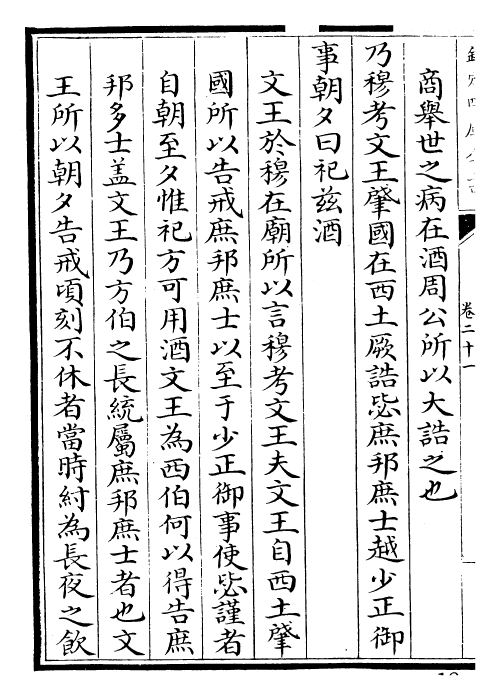 商舉世之病在酒周公所以大誥之也
乃穆考文王肇國在西土厥誥毖庶邦庶士越少正御
事朝夕曰祀兹酒
文王於穆在廟所以言穆考文王夫文王自西土肇
國所以告戒庶邦庶士以至于少正御事使毖謹者
自朝至夕惟祀方可用酒文王為西伯何以得告庶
邦多士盖文王乃方伯之長統屬庶邦庶士者也文
王所以朝夕告戒頃刻不休者當時紂為長夜之飲
卷二十一